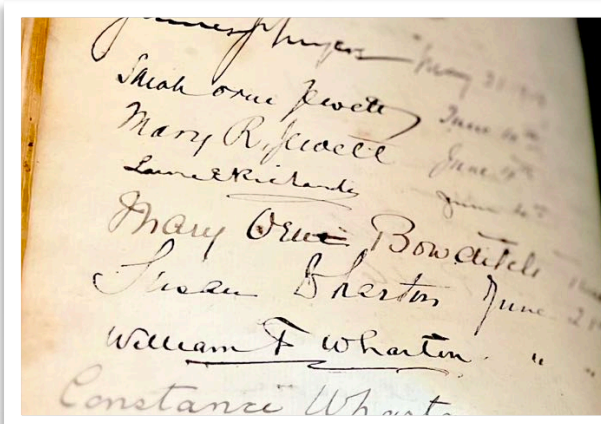 May
Sarah Orne Jewett June 4th
Mary R. Jewett June 4th
Laura E Richards June 4th
Mary Orne Bowditch
Susan Wharton June 21
William F Wharton " "
Constance